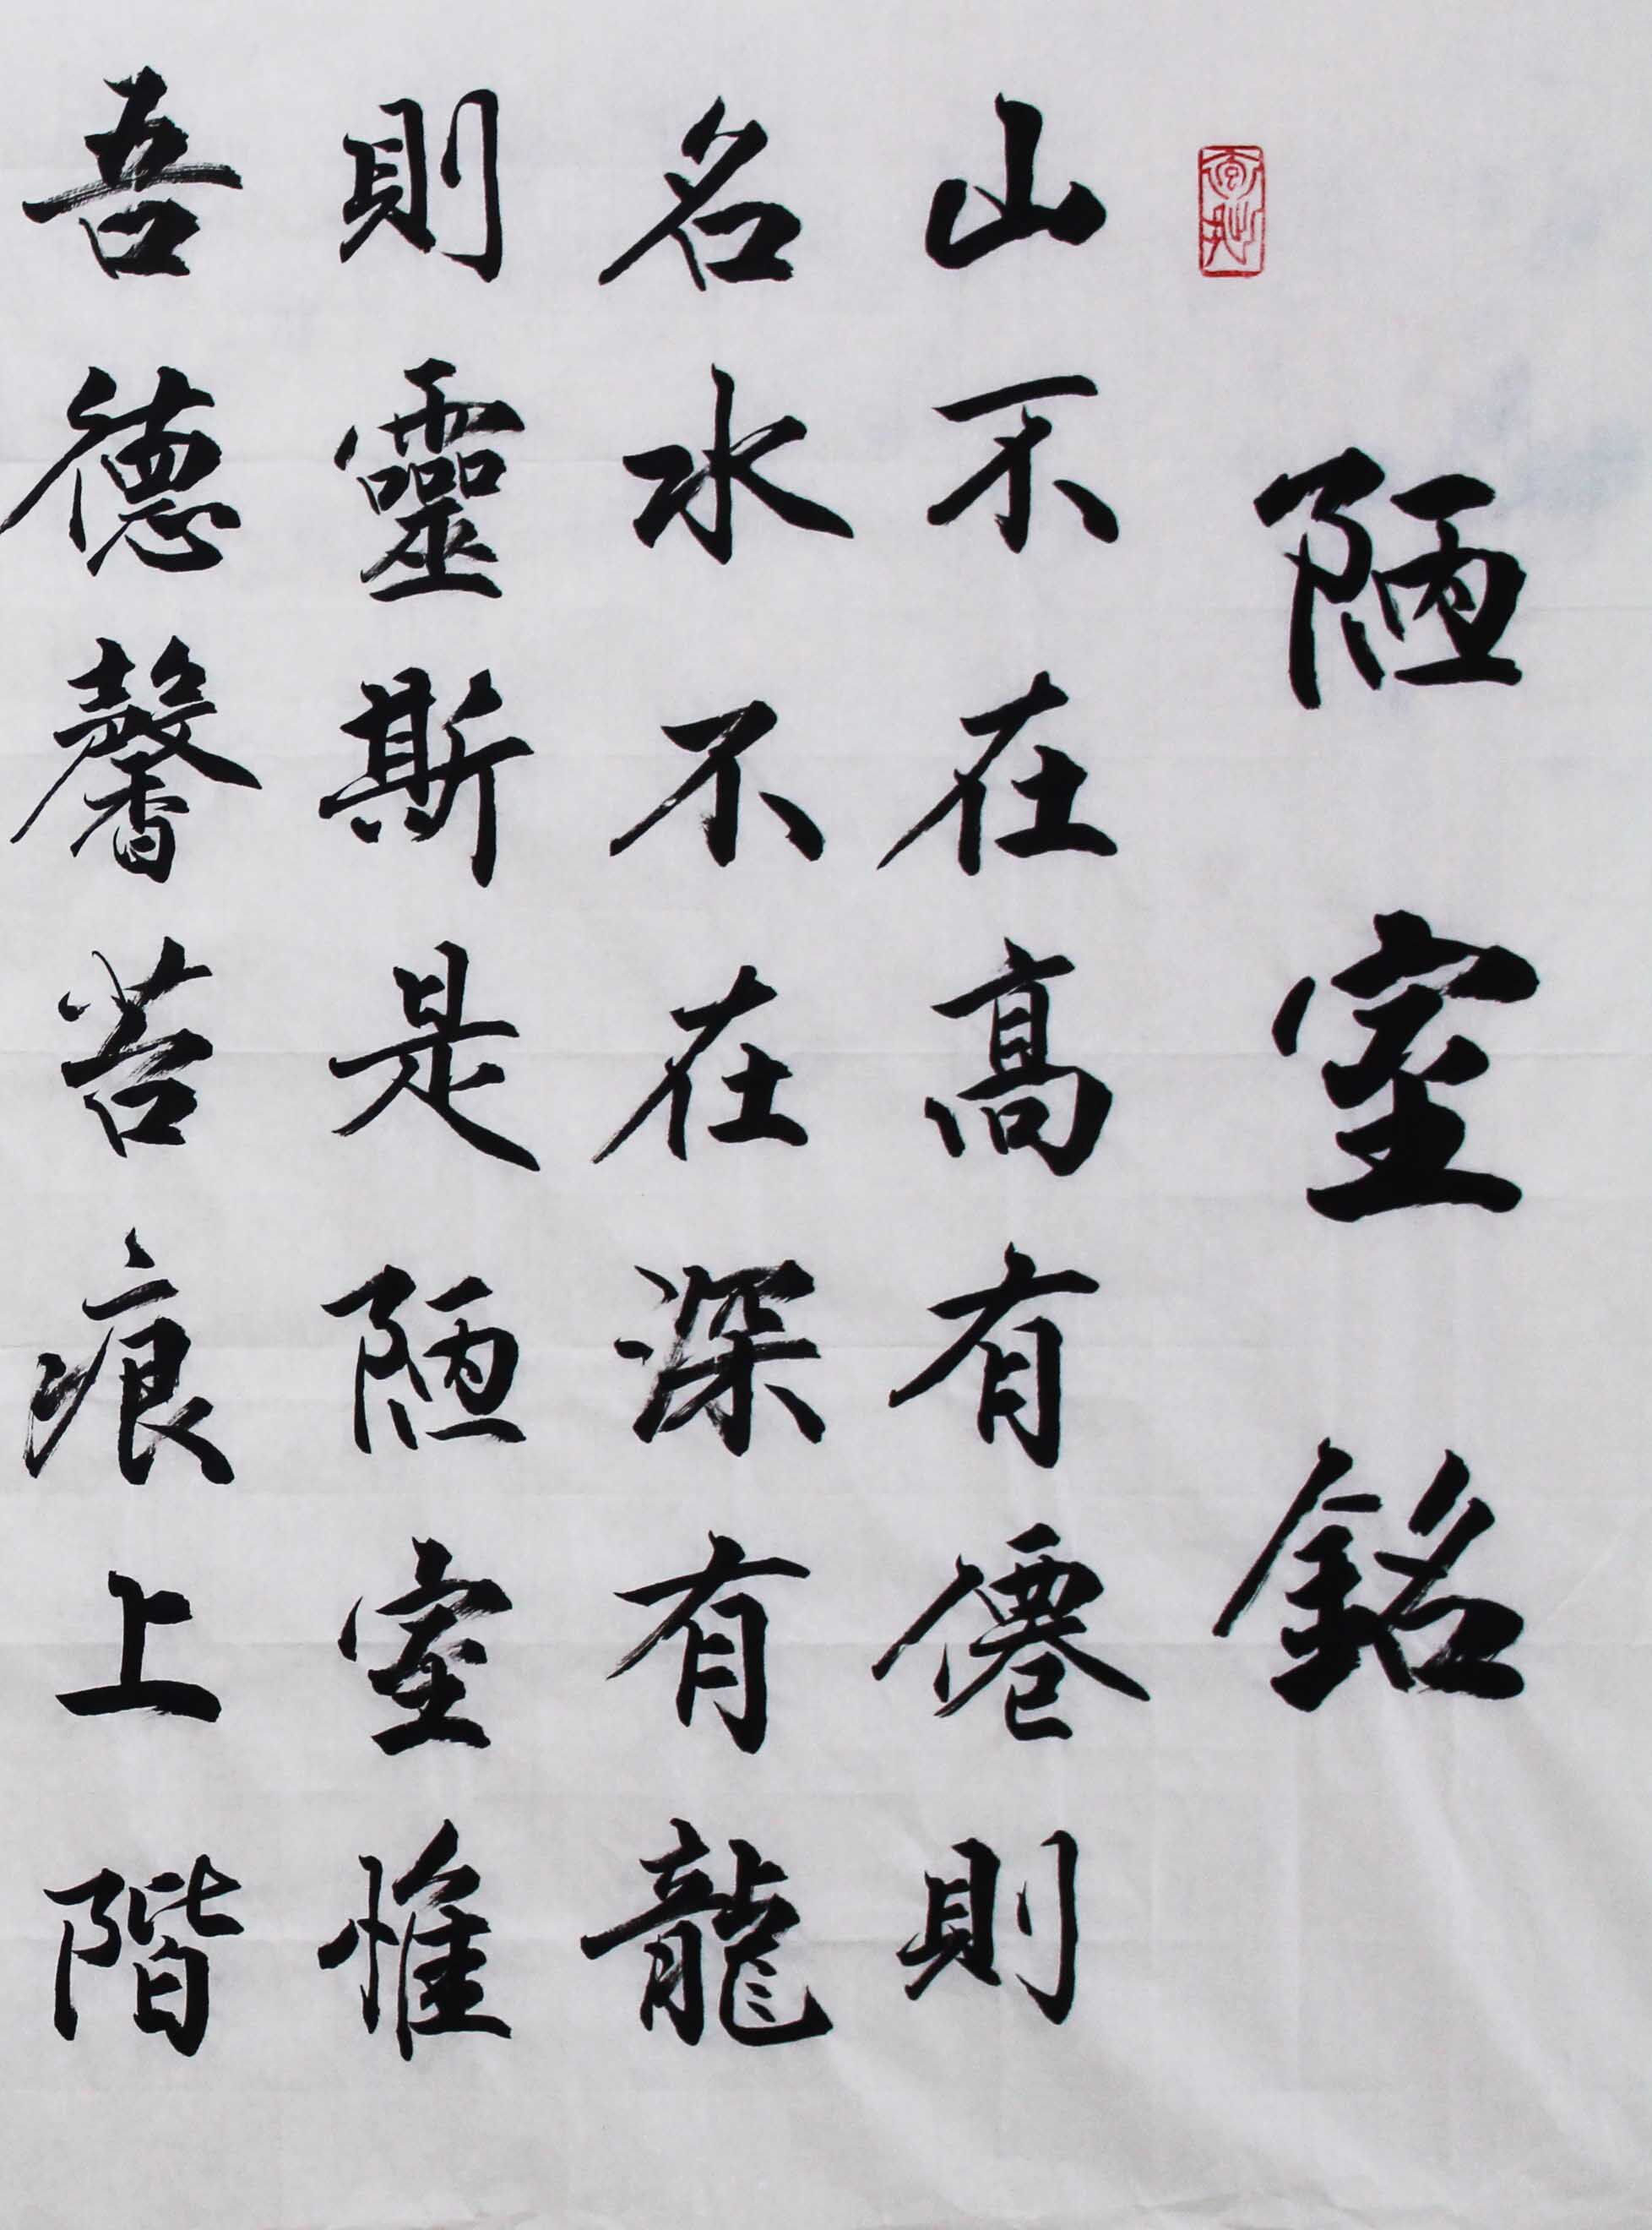 陋室銘
山不在高有僊則
名水不在深有龍
則靈斯是陋室惟
吾德馨苔痕上階